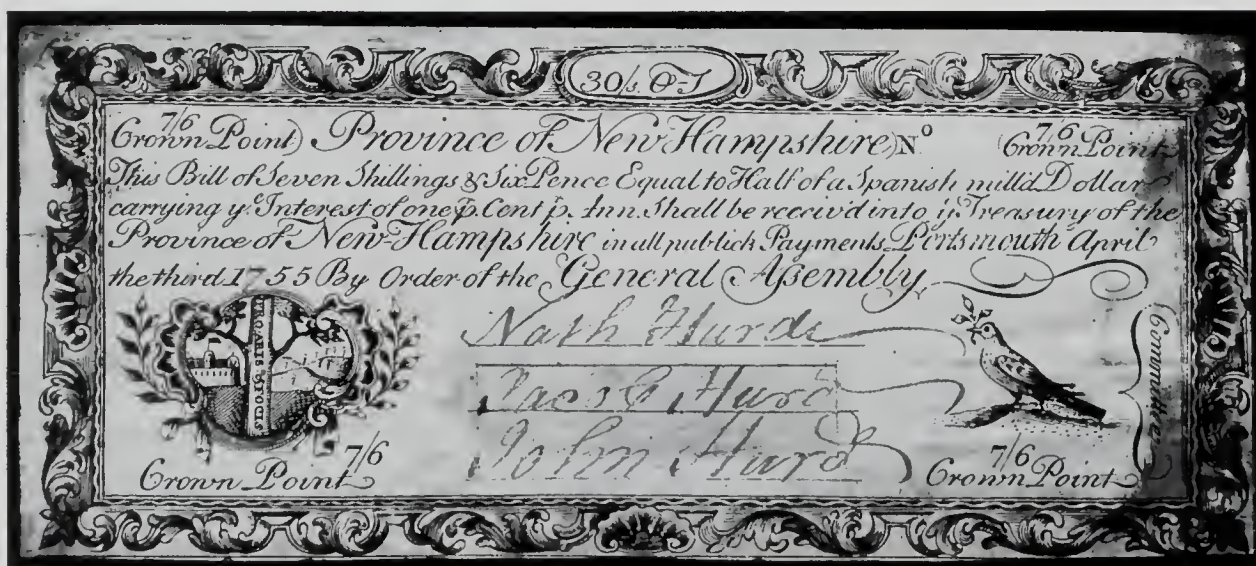 30/s. O T
7/6 Province of New Hampshire) Nº 7/6
Crown Point) (Crown Point
This Bill of Seven Shillings & Six Pence Equal to Half of a Spanish mill'd Dollar
carrying yᵉ Interest of one p. Cent p. Ann. Shall be receiv'd into yᵉ Treasury of the
Province of New-Hampshire in all publick Payments Portsmouth April
the third 1755 By Order of the General Assembly
PRO ARIS & FOCIS
Nath Hurd
Jacob Hurd
John Hurd
Committee
7/6
Crown Point
7/6
Crown Point